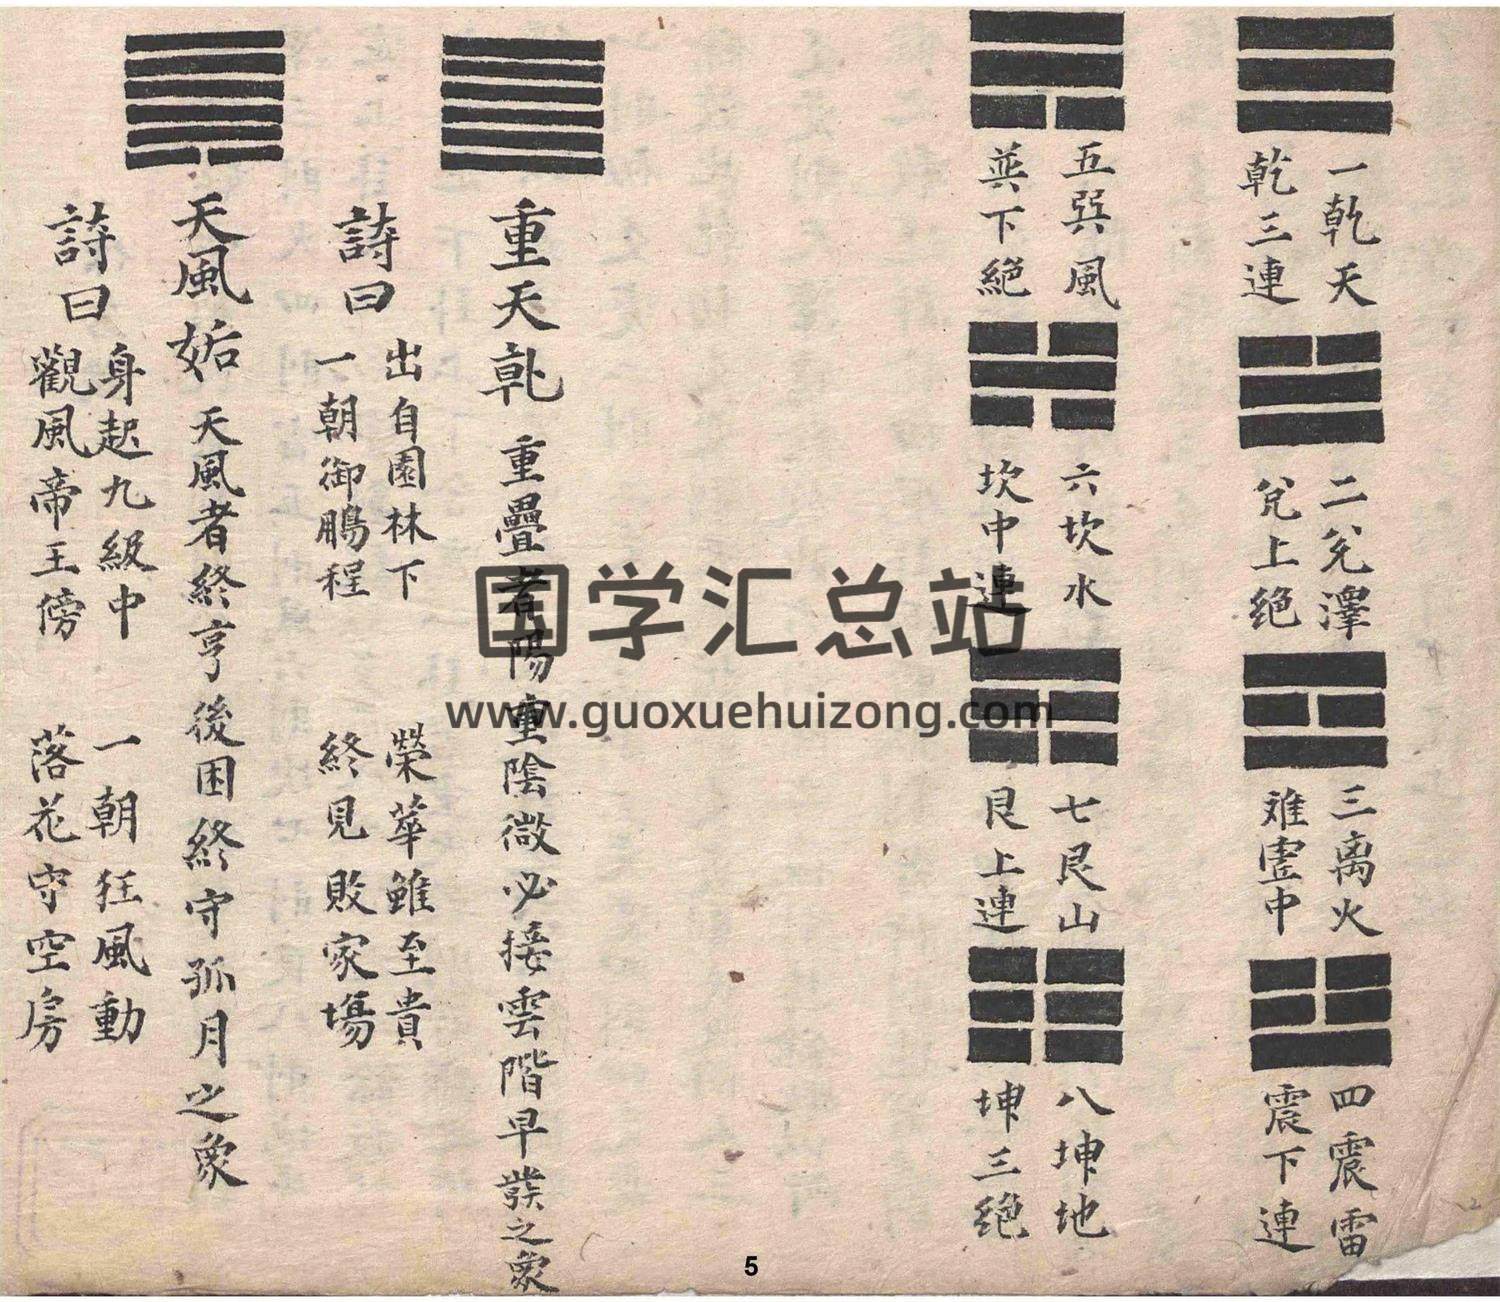 一乾天
乾三連
二兑澤
兑上绝
三离火
难虛中
四震雷
震下連
五巽風
巽下絕
六坎水
坎中連
七艮山
艮上連
八坤地
坤三绝
重天乹 重疊者陽重陰微必接雲階早發之象
詩曰
出自園林下
一朝御鵬程
榮華雖至貴
終見敗家場
天風姤 天風者終亨後困終守孤月之象
詩曰
身起九級中
觀風帝王傍
一朝狂風動
落花守空房
国学汇总站
www.guoxuehuizong.com
5